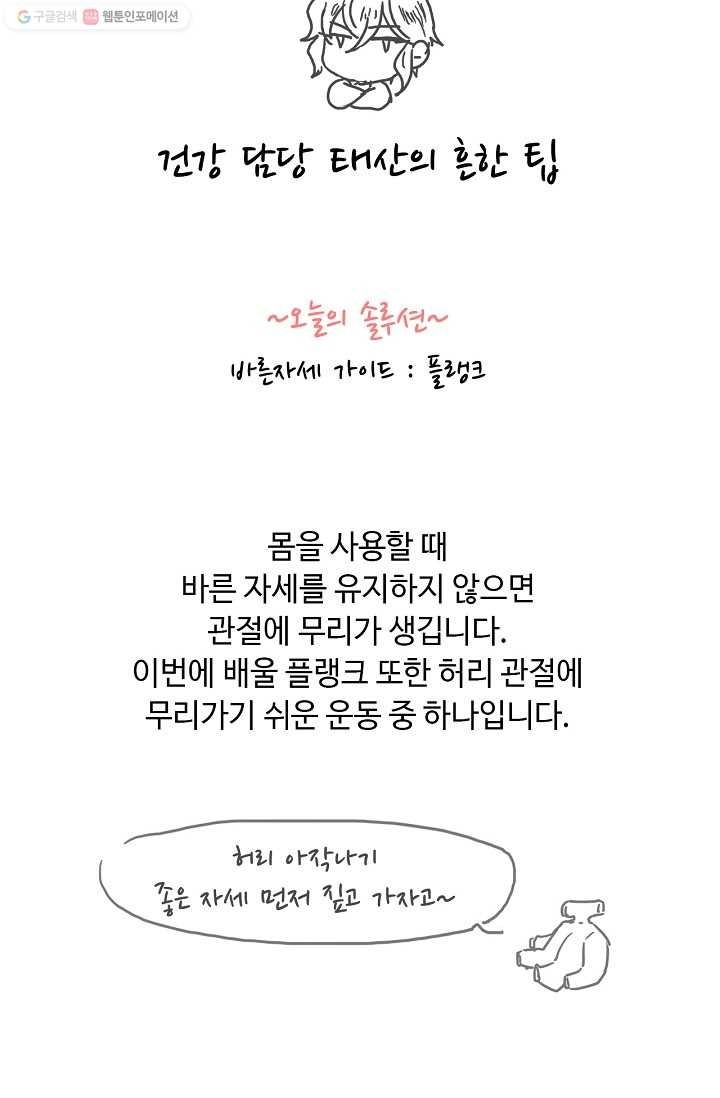 구글검색 웹툰인포메이션
건강 담당 태산의 흔한 팁
~오늘의 솔루션~
바른자세 가이드 : 플랭크
몸을 사용할 때
바른 자세를 유지하지 않으면
관절에 무리가 생깁니다.
이번에 배울 플랭크 또한 허리 관절에
무리가기 쉬운 운동 중 하나입니다.
허리 아작나기
좋은 자세 먼저 짚고 가자고~